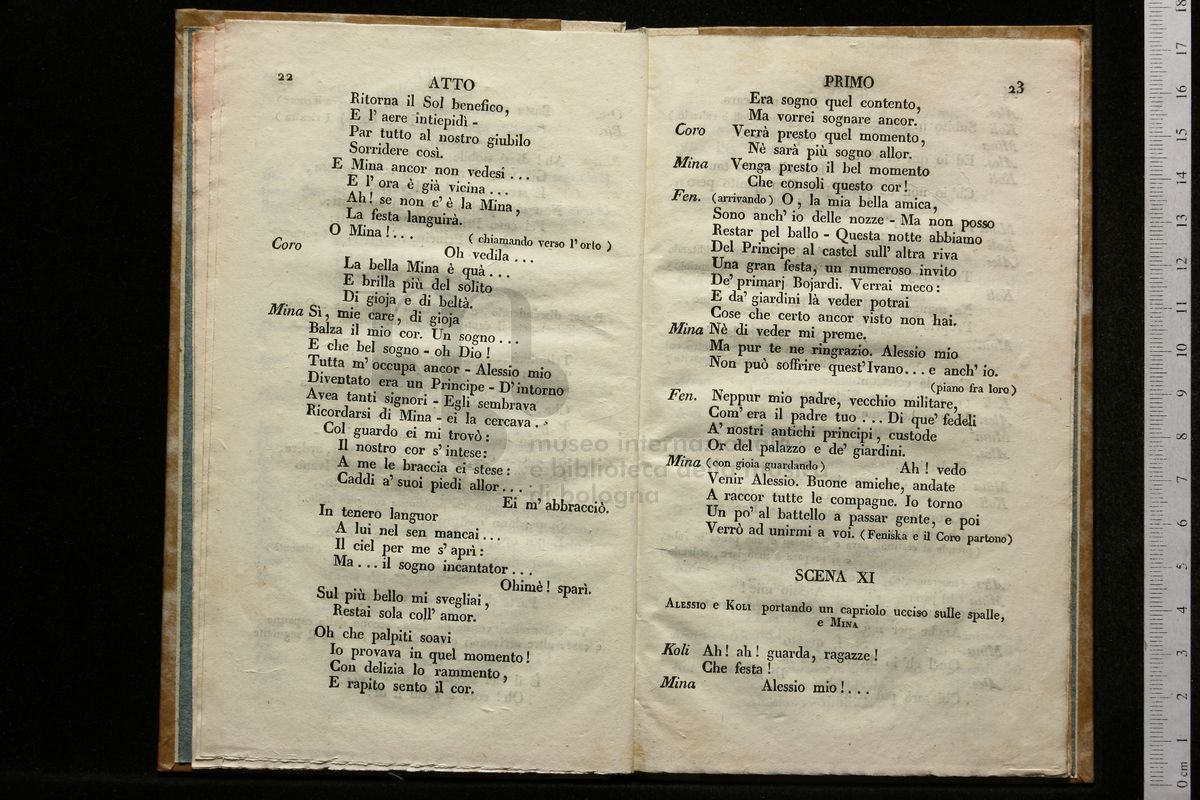 22
ATTO
Ritorna il Sol benefico,
E l' aere intiepidì -
Par tutto al nostro giubilo
Sorridere così.
E Mina ancor non vedesi ...
E l' ora è già vicina ...
Ah! se non c' è la Mina,
La festa languirà.
O Mina!... ( chiamando verso l' orto )
Coro Oh vedila ...
La bella Mina è quà ...
E brilla più del solito
Di gioja e di beltà.
Mina Sì, mie care, di gioja
Balza il mio cor. Un sogno ...
E che bel sogno - oh Dio!
Tutta m' occupa ancor - Alessio mio
Diventato era un Principe - D' intorno
Avea tanti signori - Egli sembrava
Ricordarsi di Mina - ei la cercava..
Col guardo ei mi trovò:
Il nostro cor s' intese:
A me le braccia ei stese:
Caddi a' suoi piedi allor ...
Ei m' abbracciò.
In tenero languor
A lui nel sen mancai ...
Il ciel per me s' aprì:
Ma ... il sogno incantator ...
Ohimè! sparì.
Sul più bello mi svegliai,
Restai sola coll' amor.
Oh che palpiti soavi
Io provava in quel momento!
Con delizia lo rammento,
E rapito sento il cor.
PRIMO
23
Era sogno quel contento,
Ma vorrei sognare ancor.
Coro Verrà presto quel momento,
Nè sarà più sogno allor.
Mina Venga presto il bel momento
Che consoli questo cor!
Fen. (arrivando) O, la mia bella amica,
Sono anch' io delle nozze - Ma non posso
Restar pel ballo - Questa notte abbiamo
Del Principe al castel sull' altra riva
Una gran festa, un numeroso invito
De' primarj Bojardi. Verrai meco:
E da' giardini là veder potrai
Cose che certo ancor visto non hai.
Mina Nè di veder mi preme.
Ma pur te ne ringrazio. Alessio mio
Non può soffrire quest' Ivano... e anch' io.
(piano fra loro)
Fen. Neppur mio padre, vecchio militare,
Com' era il padre tuo ... Di que' fedeli
A' nostri antichi principi, custode
Or del palazzo e de' giardini.
Mina (con gioia guardando) Ah! vedo
Venir Alessio. Buone amiche, andate
A raccor tutte le compagne. Io torno
Un po' al battello a passar gente, e poi
Verrò ad unirmi a voi. (Feniska e il Coro partono)
SCENA XI
ALESSIO e KOLI portando un capriolo ucciso sulle spalle,
e MINA
Koli Ah! ah! guarda, ragazze!
Che festa!
Mina Alessio mio!...
museo internazionale
e biblioteca della musica
di bologna
0 cm 1 2 3 4 5 6 7 8 9 10 11 12 13 14 15 16 17 18